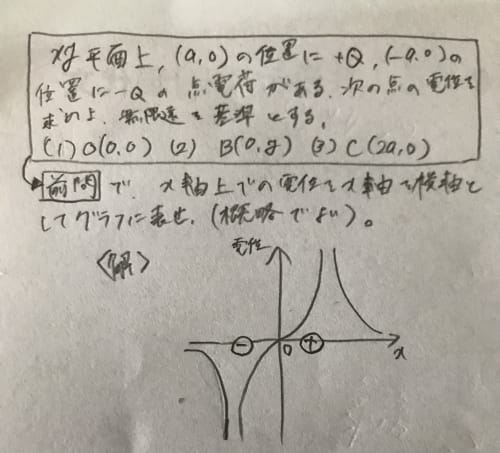 xy平面上，(a,0)の位置に+Q，(-a,0)の
位置に-Qの点電荷がある．次の点の電位を
求めよ．無限遠を基準とする．
(1) O(0,0) (2) B(0,y) (3) C(2a,0)
前問で，x軸上での電位をx軸を横軸と
してグラフに表せ．(概略でよい)。
〈解〉
電位
- 0 + x